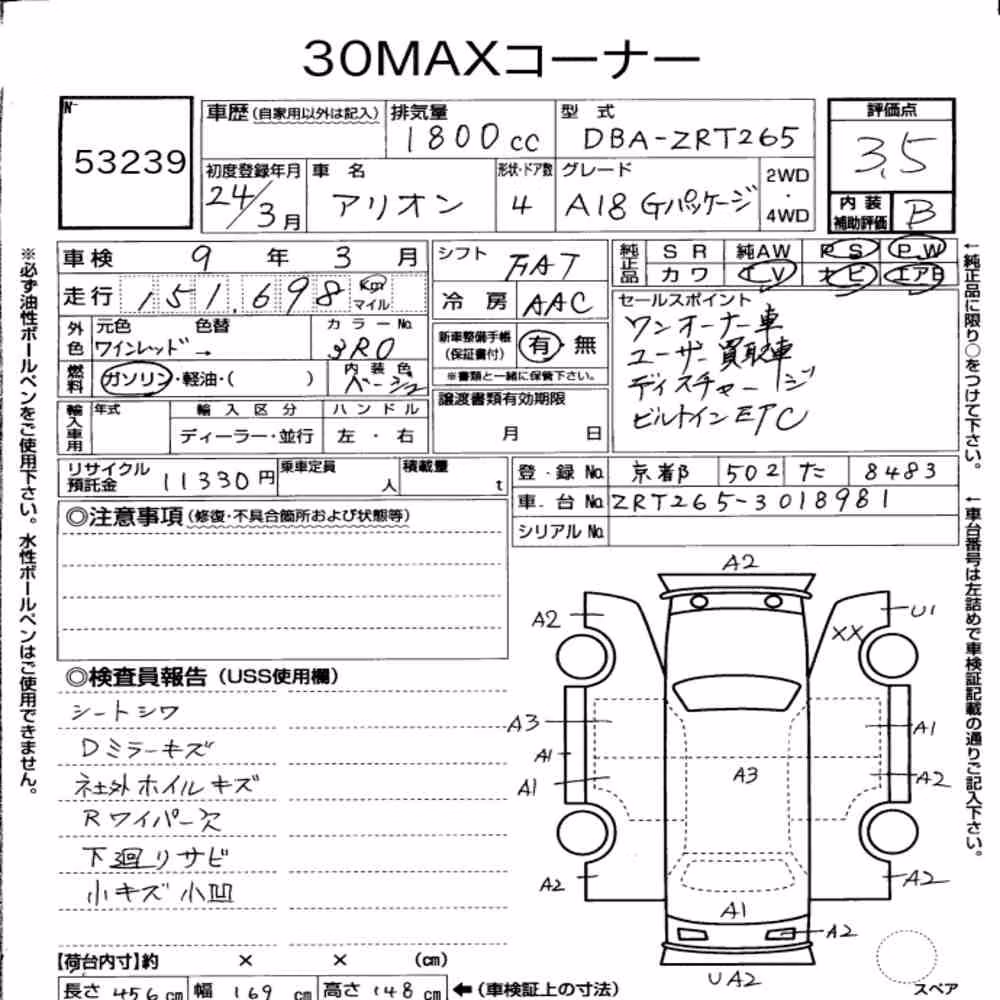 30MAXコーナー
No. 53239
車歴(自家用以外は記入) 排気量 1800cc 型式 DBA-ZRT265 評価点 3.5
初度登録年月 24/3月 車名 アリオン 形状・ドア数 4 グレード A18 Gパッケージ 2WD・4WD
内装補助評価 B
車検 9年3月 シフト FAT 純正品 SR 純AW PS PW
カワ TV ナビ エアB
走行 151,698 Km マイル 冷房 AAC
セールスポイント
ワンオーナー車
ユーザー買取車
ディスチャージ
ビルトインETC
外色 元色 ワインレッド → 色替 カラーNo. 3R0
新車整備手帳(保証書付) 有・無
※書類と一緒に保管下さい。
燃料 ガソリン・軽油・( ) 内装色 ベージュ
譲渡書類有効期限 月 日
輸入車用 年式 輸入区分 ハンドル
ディーラー・並行 左・右
リサイクル預託金 11330円 乗車定員 人 積載量 t
登・録No. 京都 502 た 8483
車・台No. ZRT265-3018981
シリアルNo.
◎注意事項(修復・不具合箇所および状態等)
◎検査員報告(USS使用欄)
シートシワ
Dミラーキズ
社外ホイルキズ
Rワイパー欠
下廻りサビ
小キズ小凹
A2
A2
U1
XX
A3
A1
A1
A1
A3
A2
A2
A1
A2
A2
UA2
スペア
【荷台内寸】約 × × (cm)
長さ 456cm 幅 169cm 高さ 148cm ←(車検証上の寸法)
※必ず油性ボールペンをご使用下さい。水性ボールペンはご使用できません。
←純正品に限り○をつけて下さい。
←車台番号は左詰めで車検証記載の通りご記入下さい。